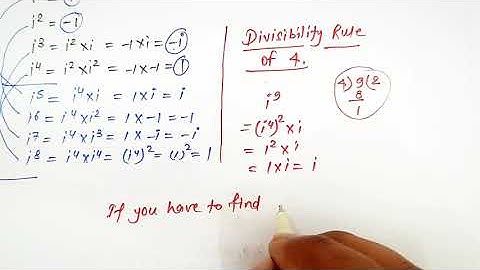 i² = -1
i3 = i² xi = -1 xi = -i
i4 = i² x i² = -1 x -1 = 1
i5 = i4 xi = 1xi = i
i6 = i4 x i² = 1 x -1 = -1
i7 = i4 x i3 = 1 x -i = -i
i8 = i4 x i4 = (i4)² = (1)² = 1
Divisibility Rule
of 4.
i9
= (i4)² x i
= 1² x i
= 1 x i = i
4) 9 (2
8
1
If you have to find